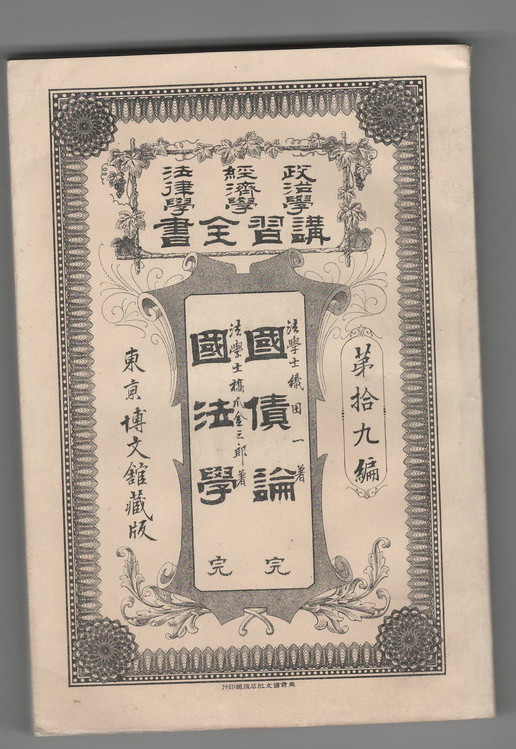 政治學
經濟學
法律學
講習全書
苐拾九編
法學士織田一著
國債論 完
法學士橋爪金三郎著
國法學 完
東亰博文館藏版